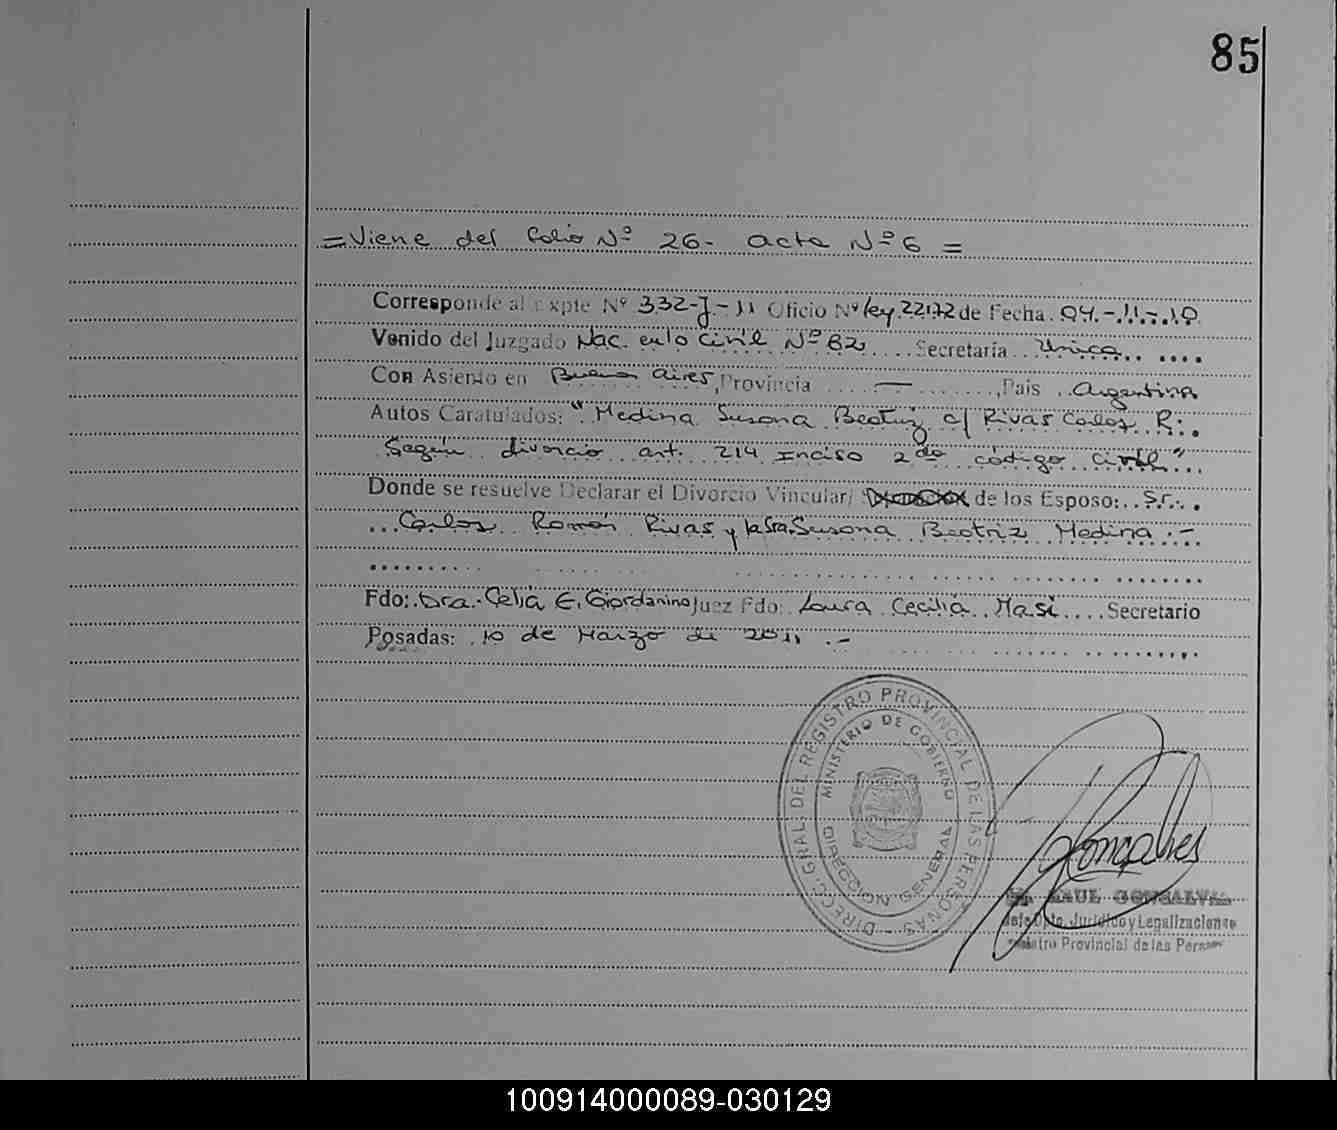 85
=Viene del folio Nº 26- acta Nº 6 =
Corresponde al Expte Nº 332-J-11 Oficio Nº ley 22172 de Fecha 04-11-10
Venido del Juzgado Nac. en lo Civil Nº 82 Secretaría Unica
Con Asiento en Buenos Aires, Provincia — , País Argentina
Autos Caratulados: "Medina Susana Beatriz c/ Rivas Carlos R.
Según divorcio art. 214 Inciso 2do código civil"
Donde se resuelve Declarar el Divorcio Vincular/ de los Esposo: Sr.
Carlos Román Rivas y la Sra. Susana Beatriz Medina.-
Fdo: Dra. Celia E. Giordanino Juez Fdo: Laura Cecilia Masi Secretario
Posadas: 10 de Marzo de 2011.-
DIRECC. GRAL. DEL REGISTRO PROVINCIAL DE LAS PERSONAS
MINISTERIO DE GOBIERNO
DIRECCION GENERAL
Gonçalves
RAUL GONSALVES
Jefe Dpto. Jurídico y Legalizaciones
Registro Provincial de las Personas
100914000089-030129